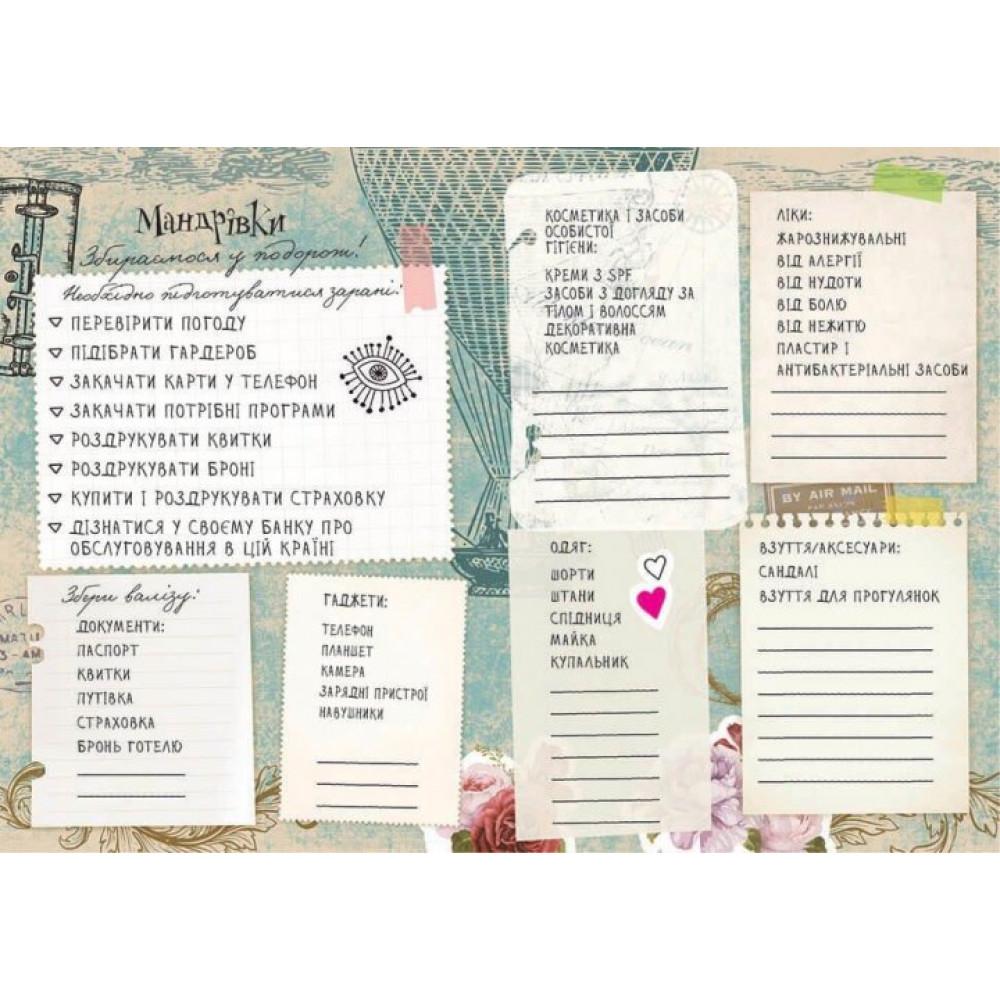 Мандрівки
Збираємося у подорож!
Необхідно підготуватися зарані:
ПЕРЕВІРИТИ ПОГОДУ
ПІДІБРАТИ ГАРДЕРОБ
ЗАКАЧАТИ КАРТИ У ТЕЛЕФОН
ЗАКАЧАТИ ПОТРІБНІ ПРОГРАМИ
РОЗДРУКУВАТИ КВИТКИ
РОЗДРУКУВАТИ БРОНІ
КУПИТИ І РОЗДРУКУВАТИ СТРАХОВКУ
ДІЗНАТИСЯ У СВОЄМУ БАНКУ ПРО
ОБСЛУГОВУВАННЯ В ЦІЙ КРАЇНІ
Збери валізу:
ДОКУМЕНТИ:
ПАСПОРТ
КВИТКИ
ПУТІВКА
СТРАХОВКА
БРОНЬ ГОТЕЛЮ
ГАДЖЕТИ:
ТЕЛЕФОН
ПЛАНШЕТ
КАМЕРА
ЗАРЯДНІ ПРИСТРОЇ
НАВУШНИКИ
КОСМЕТИКА І ЗАСОБИ
ОСОБИСТОЇ
ГІГІЄНИ:
КРЕМИ З SPF
ЗАСОБИ З ДОГЛЯДУ ЗА
ТІЛОМ І ВОЛОССЯМ
ДЕКОРАТИВНА
КОСМЕТИКА
ЛІКИ:
ЖАРОЗНИЖУВАЛЬНІ
ВІД АЛЕРГІЇ
ВІД НУДОТИ
ВІД БОЛЮ
ВІД НЕЖИТЮ
ПЛАСТИР І
АНТИБАКТЕРІАЛЬНІ ЗАСОБИ
BY AIR MAIL
ОДЯГ:
ШОРТИ
ШТАНИ
СПІДНИЦЯ
МАЙКА
КУПАЛЬНИК
ВЗУТТЯ/АКСЕСУАРИ:
САНДАЛІ
ВЗУТТЯ ДЛЯ ПРОГУЛЯНОК